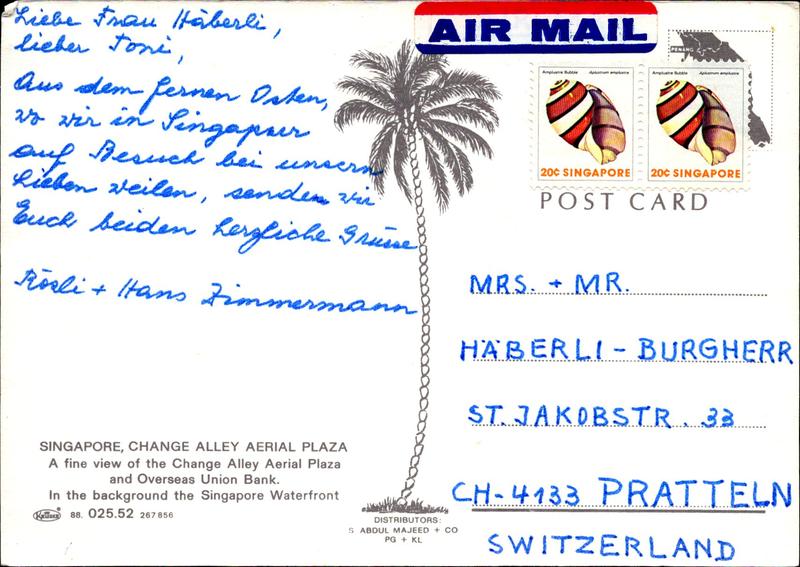 Liebe Frau Häberli,
lieber Toni,
Aus dem fernen Osten,
wo wir in Singapur
auf Besuch bei unsern
Lieben weilen, senden wir
Euch beiden herzliche Grüsse
Rösli + Hans Zimmermann
SINGAPORE, CHANGE ALLEY AERIAL PLAZA
A fine view of the Change Alley Aerial Plaza
and Overseas Union Bank.
In the background the Singapore Waterfront
KRÜGER 88. 025.52 267 856
DISTRIBUTORS:
S ABDUL MAJEED + CO
PG + KL
AIR MAIL
PENANG
Amplustre Bubble Aplustrum amplustre
20¢ SINGAPORE
Amplustre Bubble Aplustrum amplustre
20¢ SINGAPORE
POST CARD
MRS. + MR.
HÄBERLI - BURGHERR
ST. JAKOBSTR. 33
CH-4133 PRATTELN
SWITZERLAND